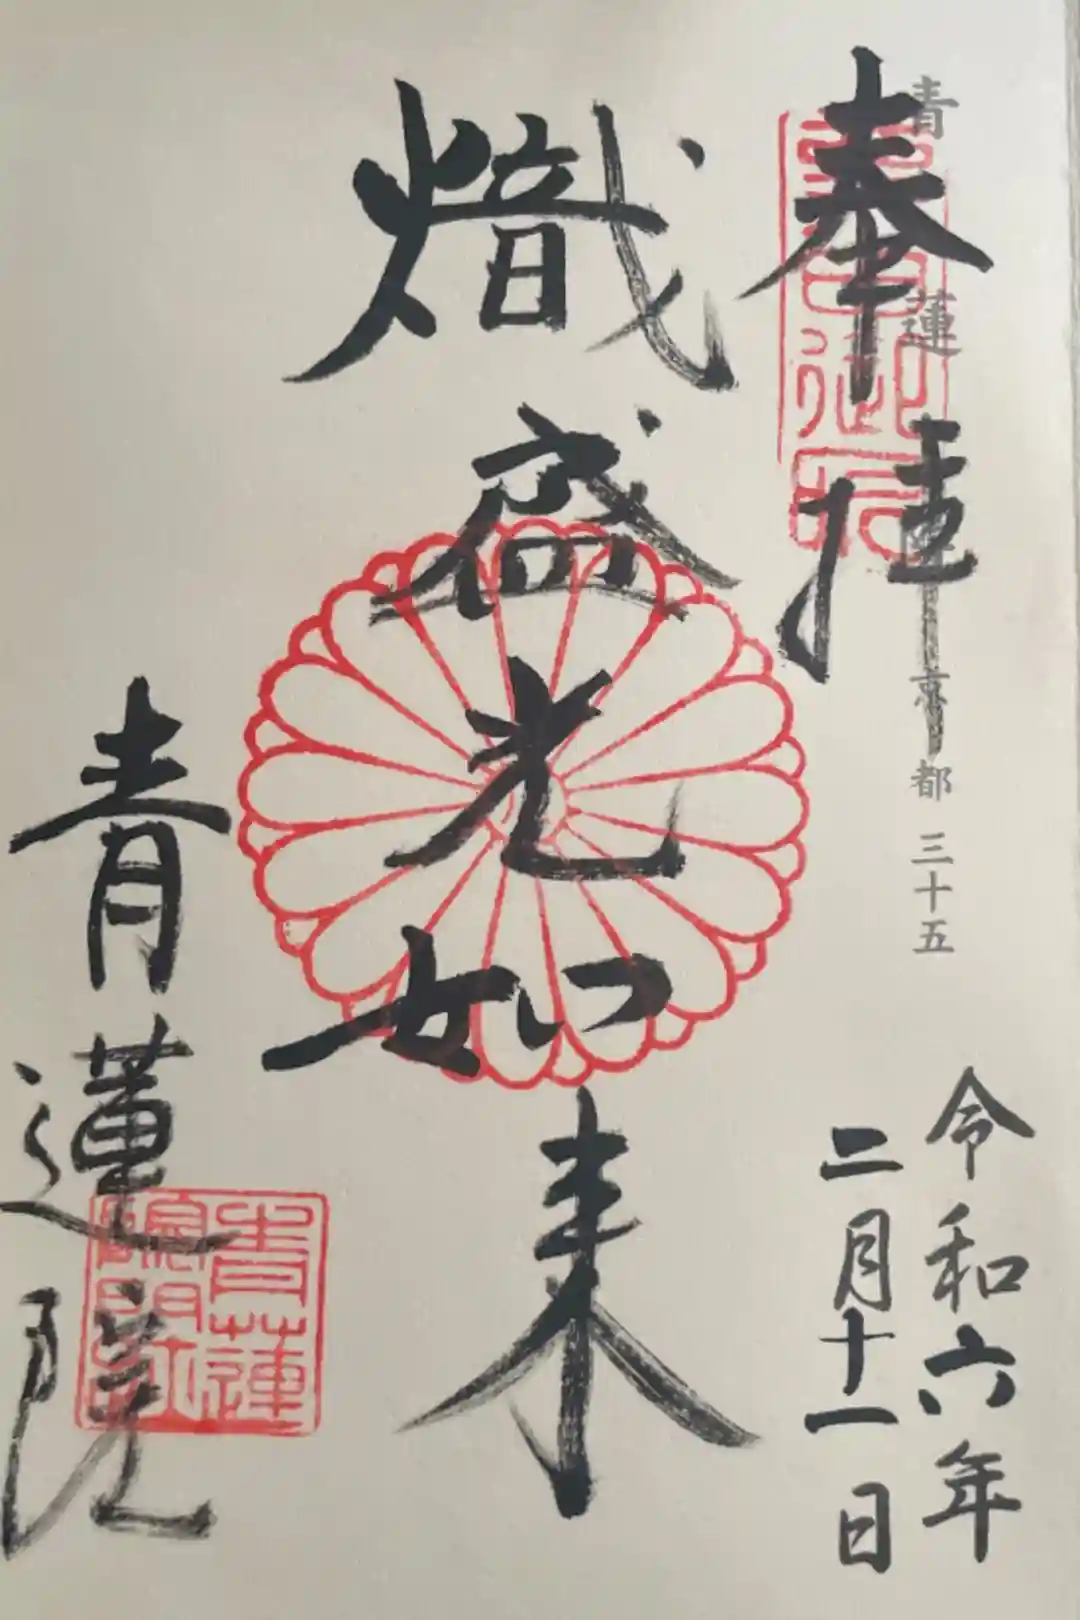 奉拝
青蓮院
京都 三十五
令和六年
二月十一日
熾盛光如来
青蓮院
青蓮